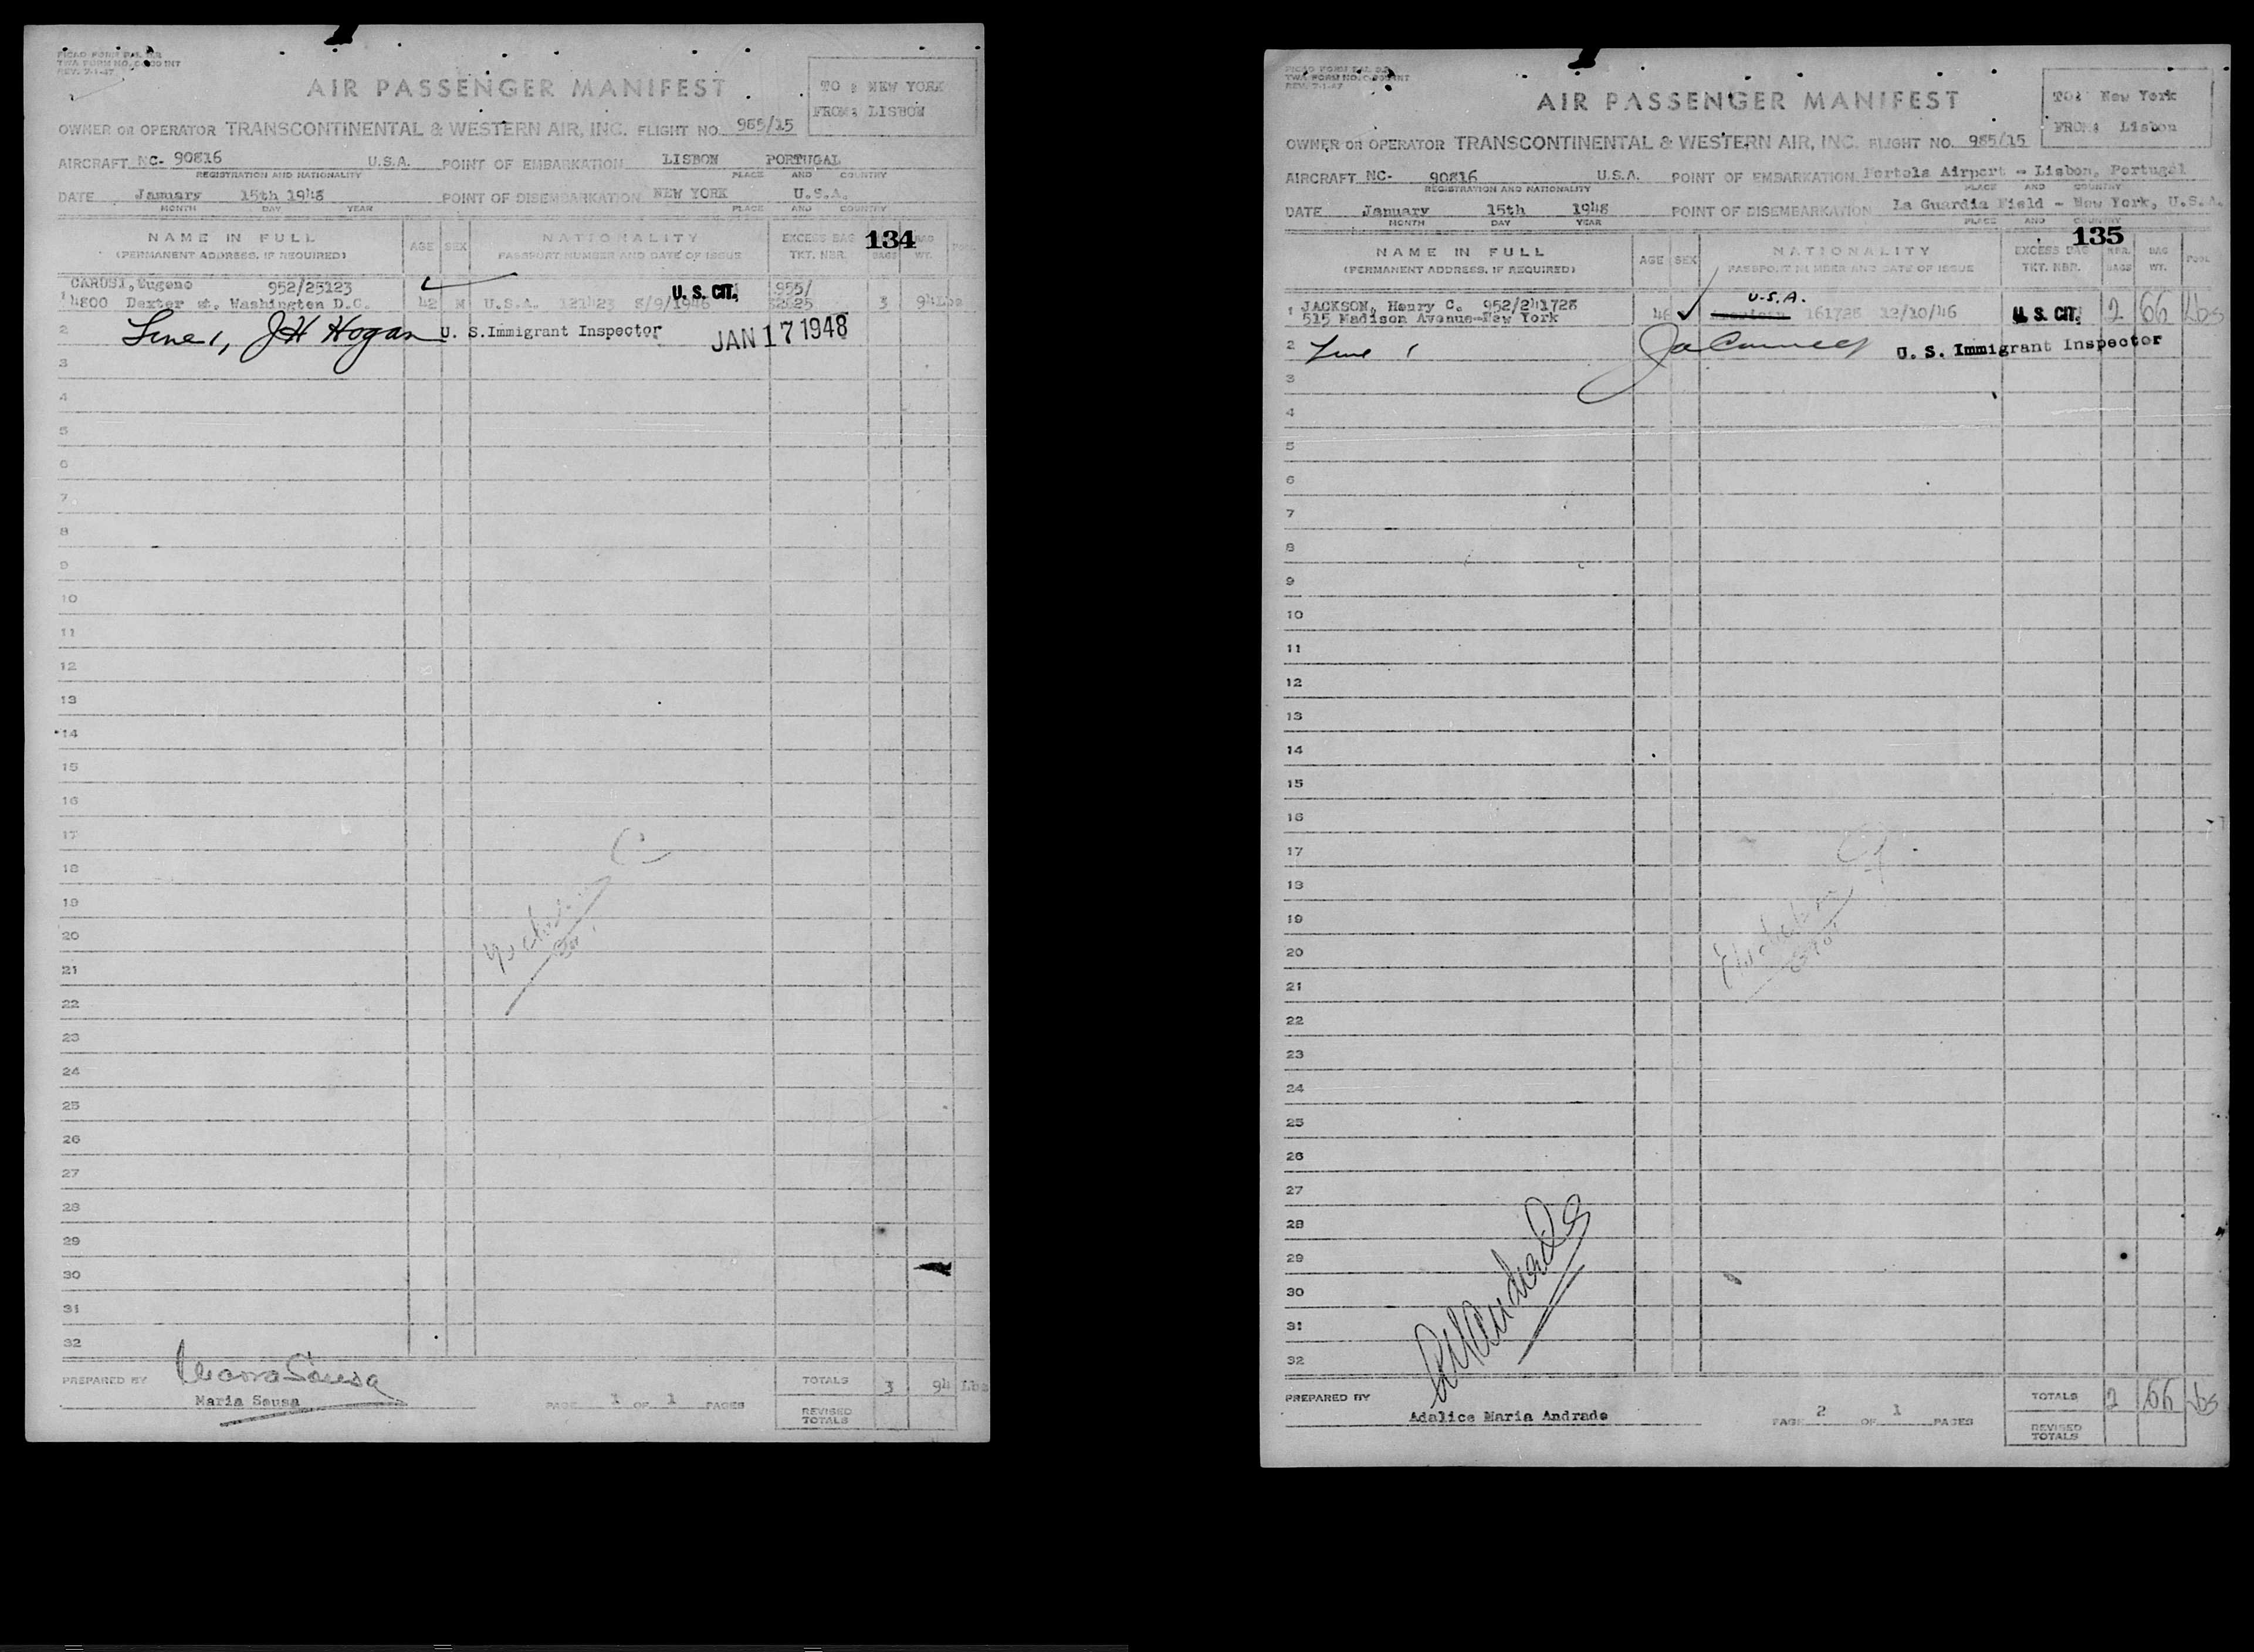 TWA FORM NO.
REV. 7-1-47
AIR PASSENGER MANIFEST
TO : NEW YORK
FROM: LISBON
OWNER OR OPERATOR TRANSCONTINENTAL & WESTERN AIR, INC. FLIGHT NO. 985/15
AIRCRAFT NC- 90816 U.S.A. POINT OF EMBARKATION LISBON PORTUGAL
REGISTRATION AND NATIONALITY PLACE AND COUNTRY
DATE January 15th 1948 POINT OF DISEMBARKATION NEW YORK U.S.A.
MONTH DAY YEAR PLACE AND COUNTRY
134
NAME IN FULL AGE SEX NATIONALITY EXCESS BAG
(PERMANENT ADDRESS, IF REQUIRED) PASSPORT NUMBER AND DATE OF ISSUE TKT. NBR. BAGS WT. POOL
CARUSI, Eugene 952/25123 U. S. CIT. 955/
1 4800 Dexter st. Washington D.C. 42 M U.S.A. 121423 8/9/1946 3 94Lbs
2 Line 1, JH Hogan U. S.Immigrant Inspector JAN 17 1948
3
4
5
6
7
8
9
10
11
12
13
14
15
16
17
18
19
20
21
22
23
24
25
26
27
28
29
30
31
32
PREPARED BY Maria Sousa
Maria Sousa
PAGE 1 OF 1 PAGES
TOTALS 3 94 Lbs
REVISED TOTALS
TWA FORM NO.
REV. 7-1-47
AIR PASSENGER MANIFEST
TO: New York
FROM: Lisbon
OWNER OR OPERATOR TRANSCONTINENTAL & WESTERN AIR, INC. FLIGHT NO. 985/15
AIRCRAFT NC- 90816 U.S.A. POINT OF EMBARKATION Portela Airport - Lisbon, Portugal
REGISTRATION AND NATIONALITY PLACE AND COUNTRY
DATE January 15th 1948 POINT OF DISEMBARKATION La Guardia Field - New York, U.S.A.
MONTH DAY YEAR PLACE AND COUNTRY
135
NAME IN FULL AGE SEX NATIONALITY EXCESS BAG NBR. BAG
(PERMANENT ADDRESS, IF REQUIRED) PASSPORT NUMBER AND DATE OF ISSUE TKT. NBR. BAGS WT. POOL
U.S.A.
1 JACKSON, Henry C. 952/241728 46 161728 12/10/46 U. S. CIT. 2 66 Lbs
515 Madison Avenue-New York
2 Line 1 U. S. Immigrant Inspector
3
4
5
6
7
8
9
10
11
12
13
14
15
16
17
18
19
20
21
22
23
24
25
26
27
28
29
30
31
32
PREPARED BY
Adalice Maria Andrade
PAGE 2 OF 1 PAGES
TOTALS 2 66 Lbs
REVISED TOTALS